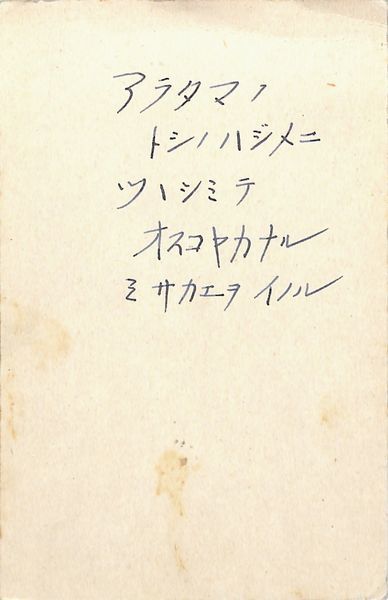 アラタマノ
トシノハジメニ
ツヽシミテ
オスコヤカナル
ミサカエヲイノル